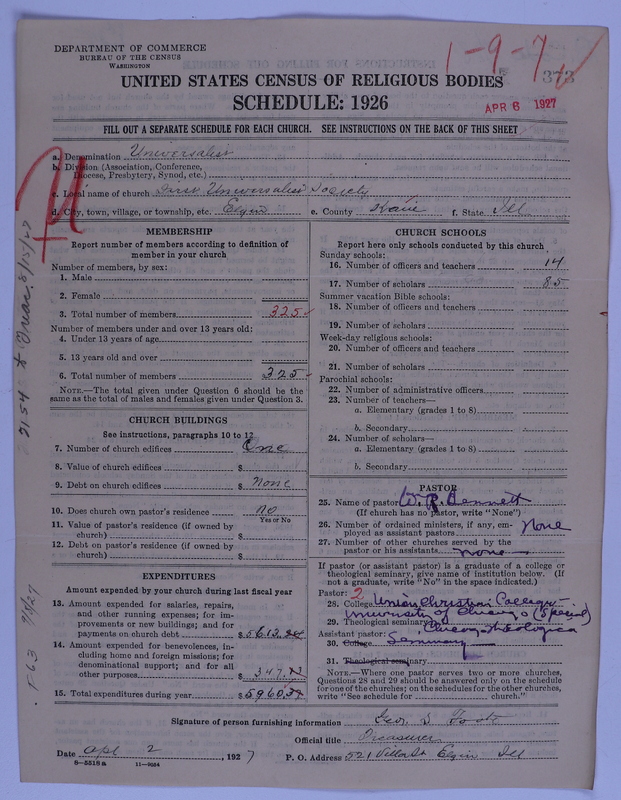 DEPARTMENT OF COMMERCE
BUREAU OF THE CENSUS
WASHINGTON
1-9-7
373
UNITED STATES CENSUS OF RELIGIOUS BODIES
SCHEDULE: 1926
APR 6 1927
FILL OUT A SEPARATE SCHEDULE FOR EACH CHURCH. SEE INSTRUCTIONS ON THE BACK OF THIS SHEET
a. Denomination Universalist
b. Division (Association, Conference,
Diocese, Presbytery, Synod, etc.)
c. Local name of church First Universalist Society
d. City, town, village, or township, etc. Elgin e. County Kane f. State Ill
MEMBERSHIP
Report number of members according to definition of
member in your church
Number of members, by sex:
1. Male
2. Female
3. Total number of members 325
Number of members under and over 13 years old:
4. Under 13 years of age
5. 13 years old and over
6. Total number of members 325
NOTE.—The total given under Question 6 should be the
same as the total of males and females given under Question 3.
CHURCH BUILDINGS
See instructions, paragraphs 10 to 12
7. Number of church edifices One
8. Value of church edifices $
9. Debt on church edifices $ None
10. Does church own pastor's residence? no
Yes or No
11. Value of pastor's residence (if owned by
church) $
12. Debt on pastor's residence (if owned by
church) $
EXPENDITURES
Amount expended by your church during last fiscal year
13. Amount expended for salaries, repairs,
and other running expenses; for im-
provements or new buildings; and for
payments on church debt $ 5613.
14. Amount expended for benevolences, in-
cluding home and foreign missions; for
denominational support; and for all
other purposes 347.
15. Total expenditures during year $ 5960.
CHURCH SCHOOLS
Report here only schools conducted by this church
Sunday schools:
16. Number of officers and teachers 14
17. Number of scholars 85
Summer vacation Bible schools:
18. Number of officers and teachers
19. Number of scholars
Week-day religious schools:
20. Number of officers and teachers
21. Number of scholars
Parochial schools:
22. Number of administrative officers
23. Number of teachers—
a. Elementary (grades 1 to 8)
b. Secondary
24. Number of scholars—
a. Elementary (grades 1 to 8)
b. Secondary
PASTOR
25. Name of pastor Wm R. Bennett
(If church has no pastor, write "None")
26. Number of ordained ministers, if any, em-
ployed as assistant pastors None
27. Number of other churches served by the
pastor or his assistants none
If pastor (or assistant pastor) is a graduate of a college or
theological seminary, give name of institution below. (If
not a graduate, write "No" in the space indicated.)
Pastor: 2
28. College Union Christian College
University of Chicago (Special)
29. Theological seminary Chicago Theological
Assistant pastor:
30. College Seminary
31. Theological seminary
NOTE.—Where one pastor serves two or more churches,
Questions 28 and 29 should be answered only on the schedule
for one of the churches; on the schedules for the other churches,
write "See schedule for church."
Signature of person furnishing information Geo. S.
Official title Treasurer
Date Apl 2, 1927 P. O. Address 521 Villa St Elgin Ill
8—5518a 11—9024